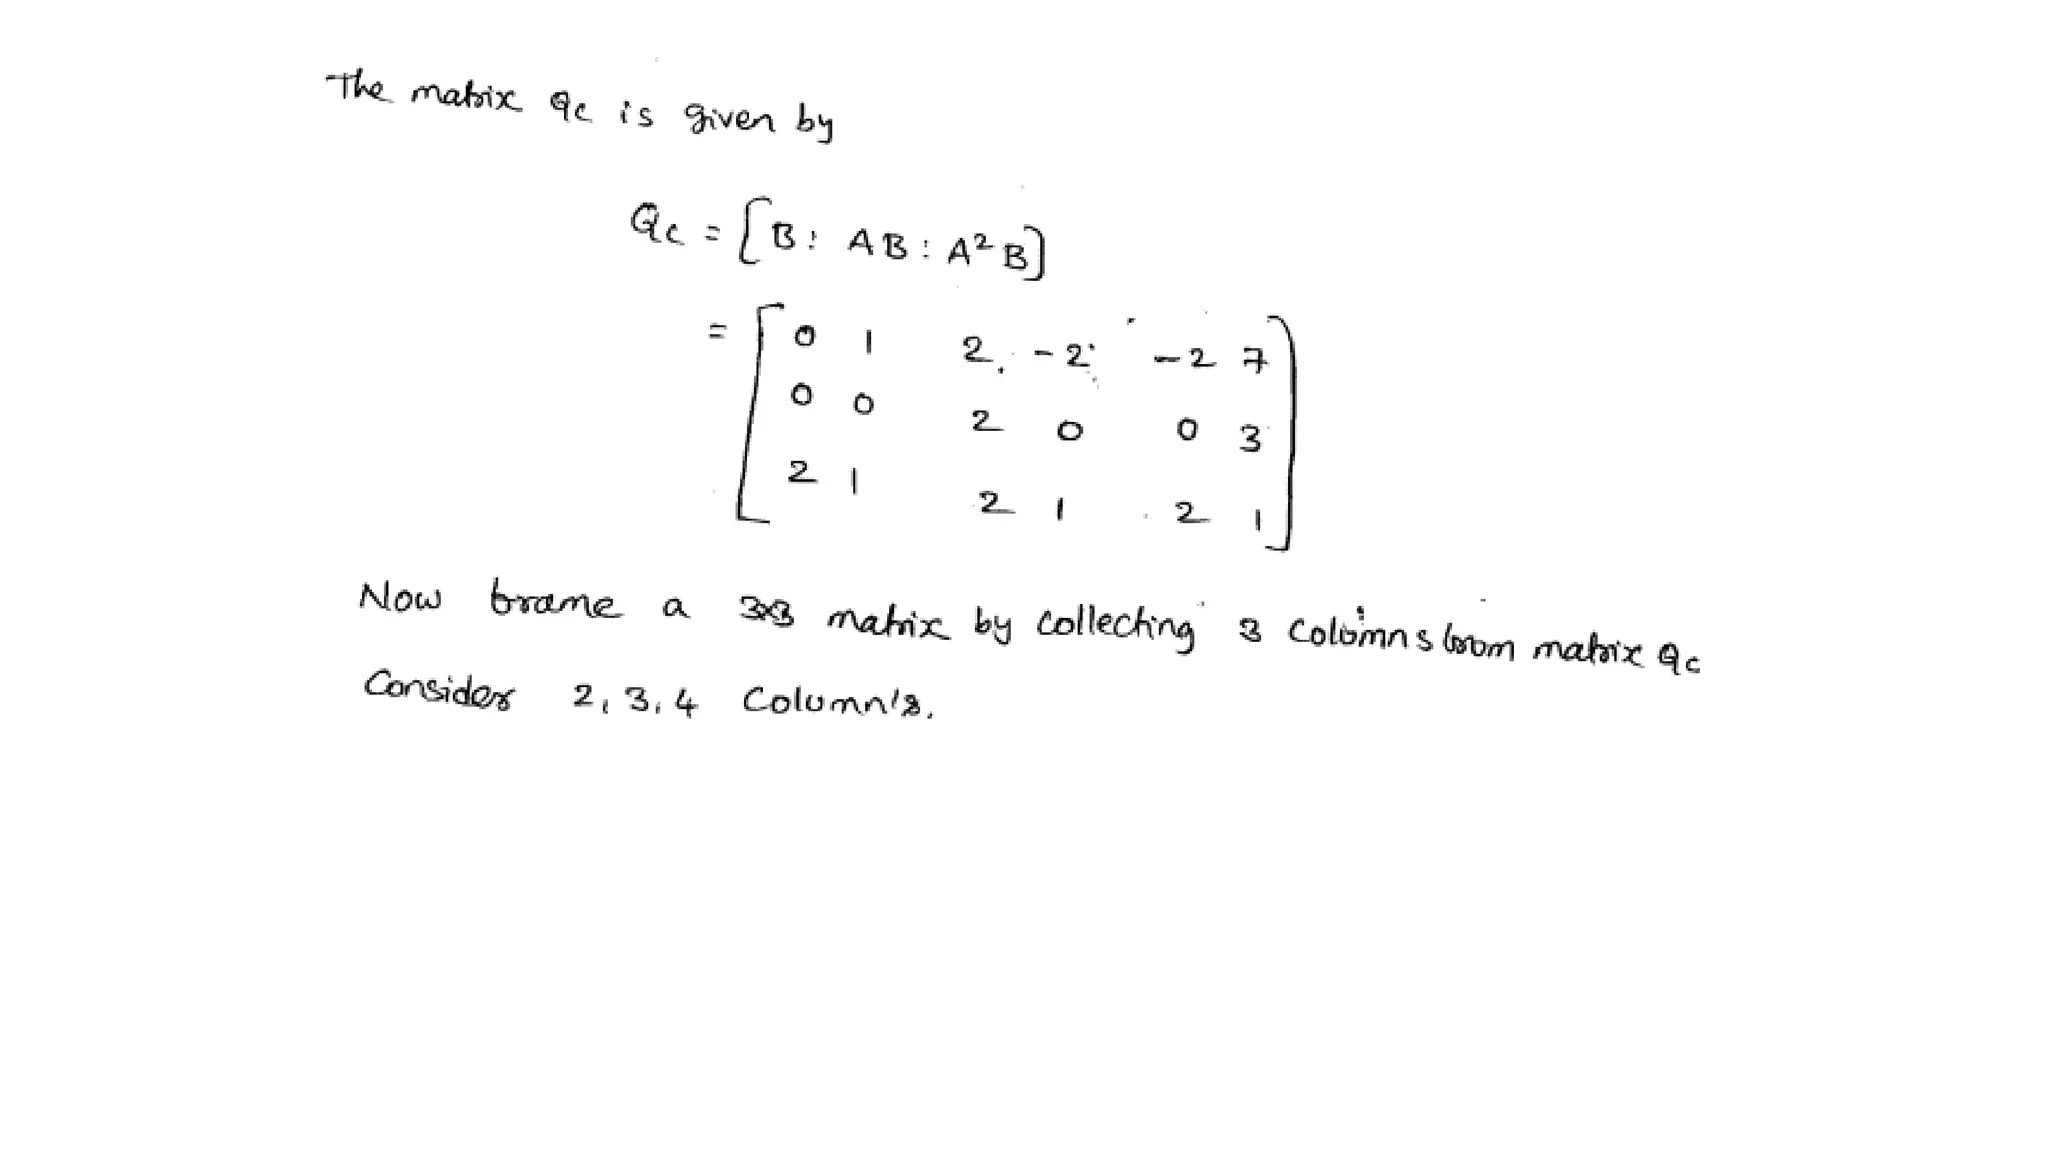 The matrix Qc is given by
Qc = [B : AB : A² B]
= [ 0 1 2 -2 -2 7
0 0 2 0 0 3
2 1 2 1 2 1 ]
Now frame a 3x3 matrix by collecting 3 Columns from matrix Qc
Consider 2, 3, 4 Column's.